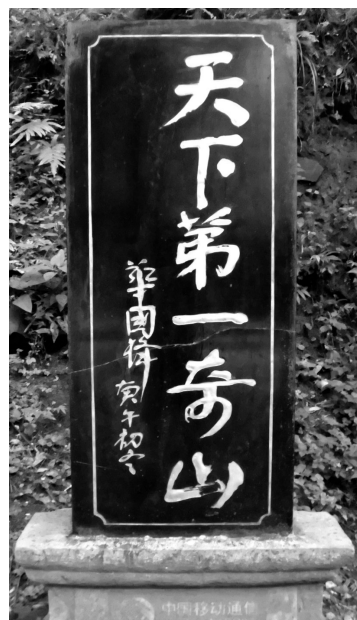 天下第一奇山
華國鋒 庚午初冬
中国移动通信